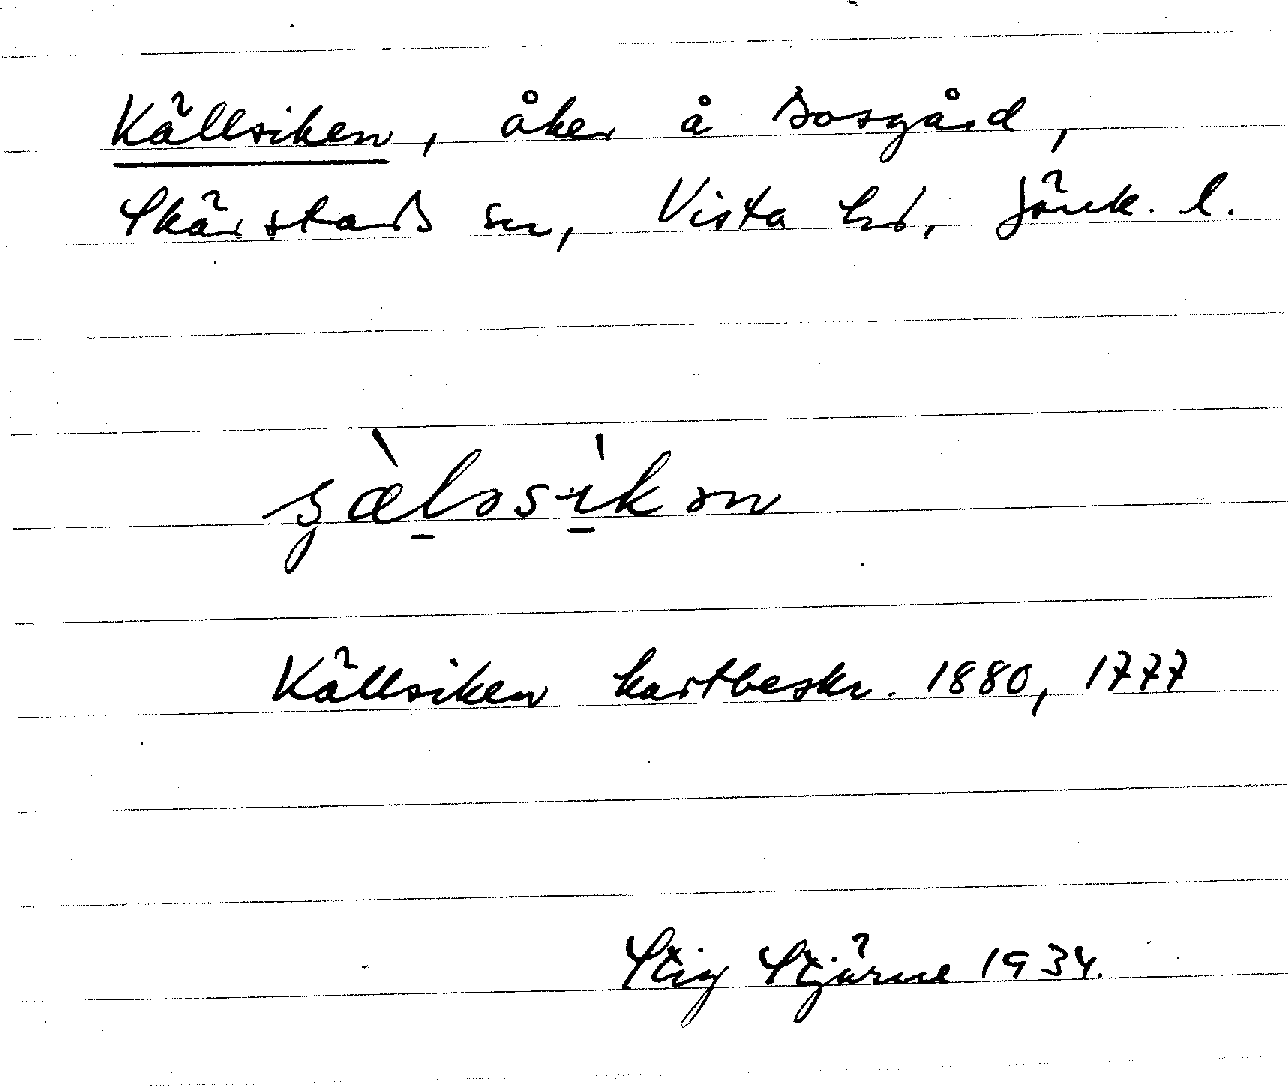 Källsiken, åker å Bosgård,
Skärstads sn, Vista hd, Jönk. l.
Källsiken kartbeskr. 1880, 1777
Stig Stjärne 1934.